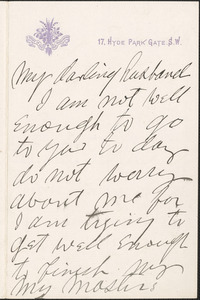 17, HYDE PARK GATE. S.W.
My darling Husband
I am not well
enough to go
to you to day
do not worry
about me for
I am trying to
get well enough
to finish my
my